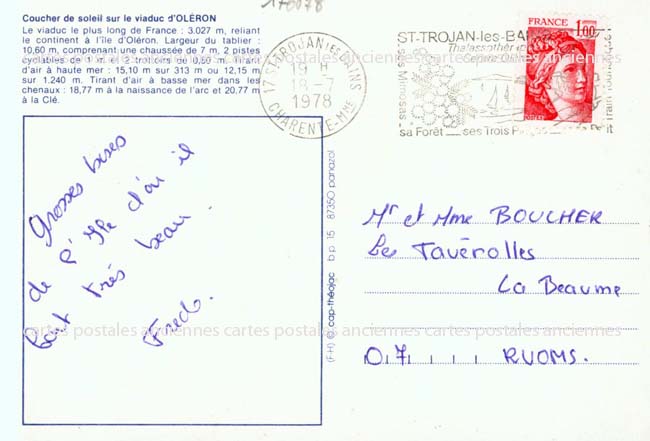 170078
Coucher de soleil sur le viaduc d'OLÉRON
Le viaduc le plus long de France : 3.027 m, reliant
le continent à l'île d'Oléron. Largeur du tablier :
10,60 m, comprenant une chaussée de 7 m, 2 pistes
cyclables de 0,90 m et 2 trottoirs de 0,90 m. Tirant
d'air à haute mer : 15,10 m sur 313 m ou 12,15 m
sur 1.240 m. Tirant d'air à basse mer dans les
chenaux : 18,77 m à la naissance de l'arc et 20,77 m
à la Clé.
17 ST-TROJAN LES BAINS
19 H
18 - 7
1978
CHARENTE-MME
ST-TROJAN-les-BAINS
Thalassothér
ses Mimosas
sa Forêt ses Trois P
Train Touristique
FRANCE
1,00
Grosses bises
de l'Ile d'ou il
fait très beau.
Fredo.
(F-H) © cap-théojac b p 15 87350 panazol
Mr et Mme BOUCHER
Les Tavérolles
La Beaume
07 RUOMS.
cartes postales anciennes cartes postales anciennes cartes postales anciennes